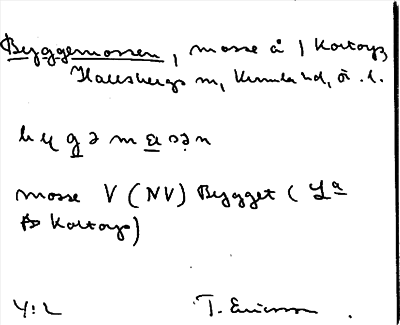 Byggemossen, mosse å 1 Kortorp,
Hallsbergs sn, Kumla hd, Ör. l.
bygəmɑsən
mosse V (NV) Bygget (La
Kortorp)
4:2
T. Ericsson